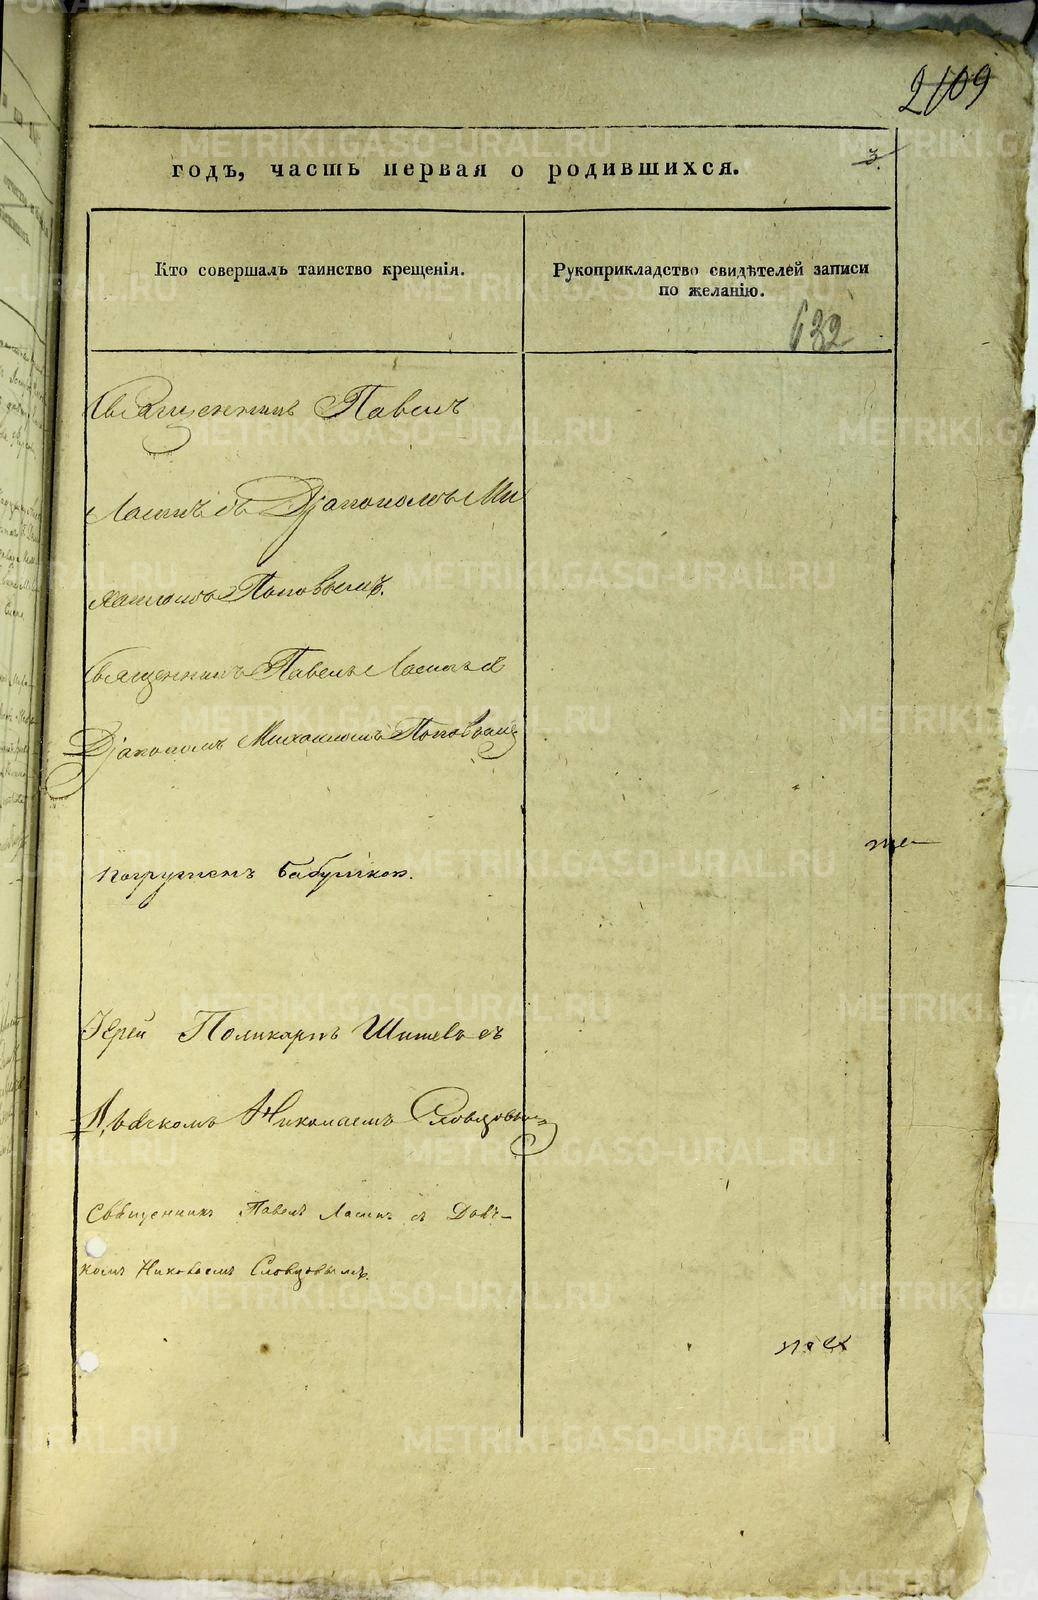 2109
годъ, часть первая о родившихся.
3.
Кто совершалъ таинство крещенія.
Рукоприкладство свидѣтелей записи
по желанію.
632
Священникъ Павелъ
Ласинъ съ Дiакономъ Ми
хаиломъ Поповымъ.
Священникъ Павелъ Ласинъ с
Дiакономъ Михаиломъ Поповымъ
Погруженъ бабушкою.
Iерей Поликарпъ Шишевъ съ
Дьячкомъ Николаемъ Словцовымъ
Священникъ Павелъ Ласинъ съ Дьяч-
комъ Николаемъ Словцовымъ.
METRIKI.GASO-URAL.RU